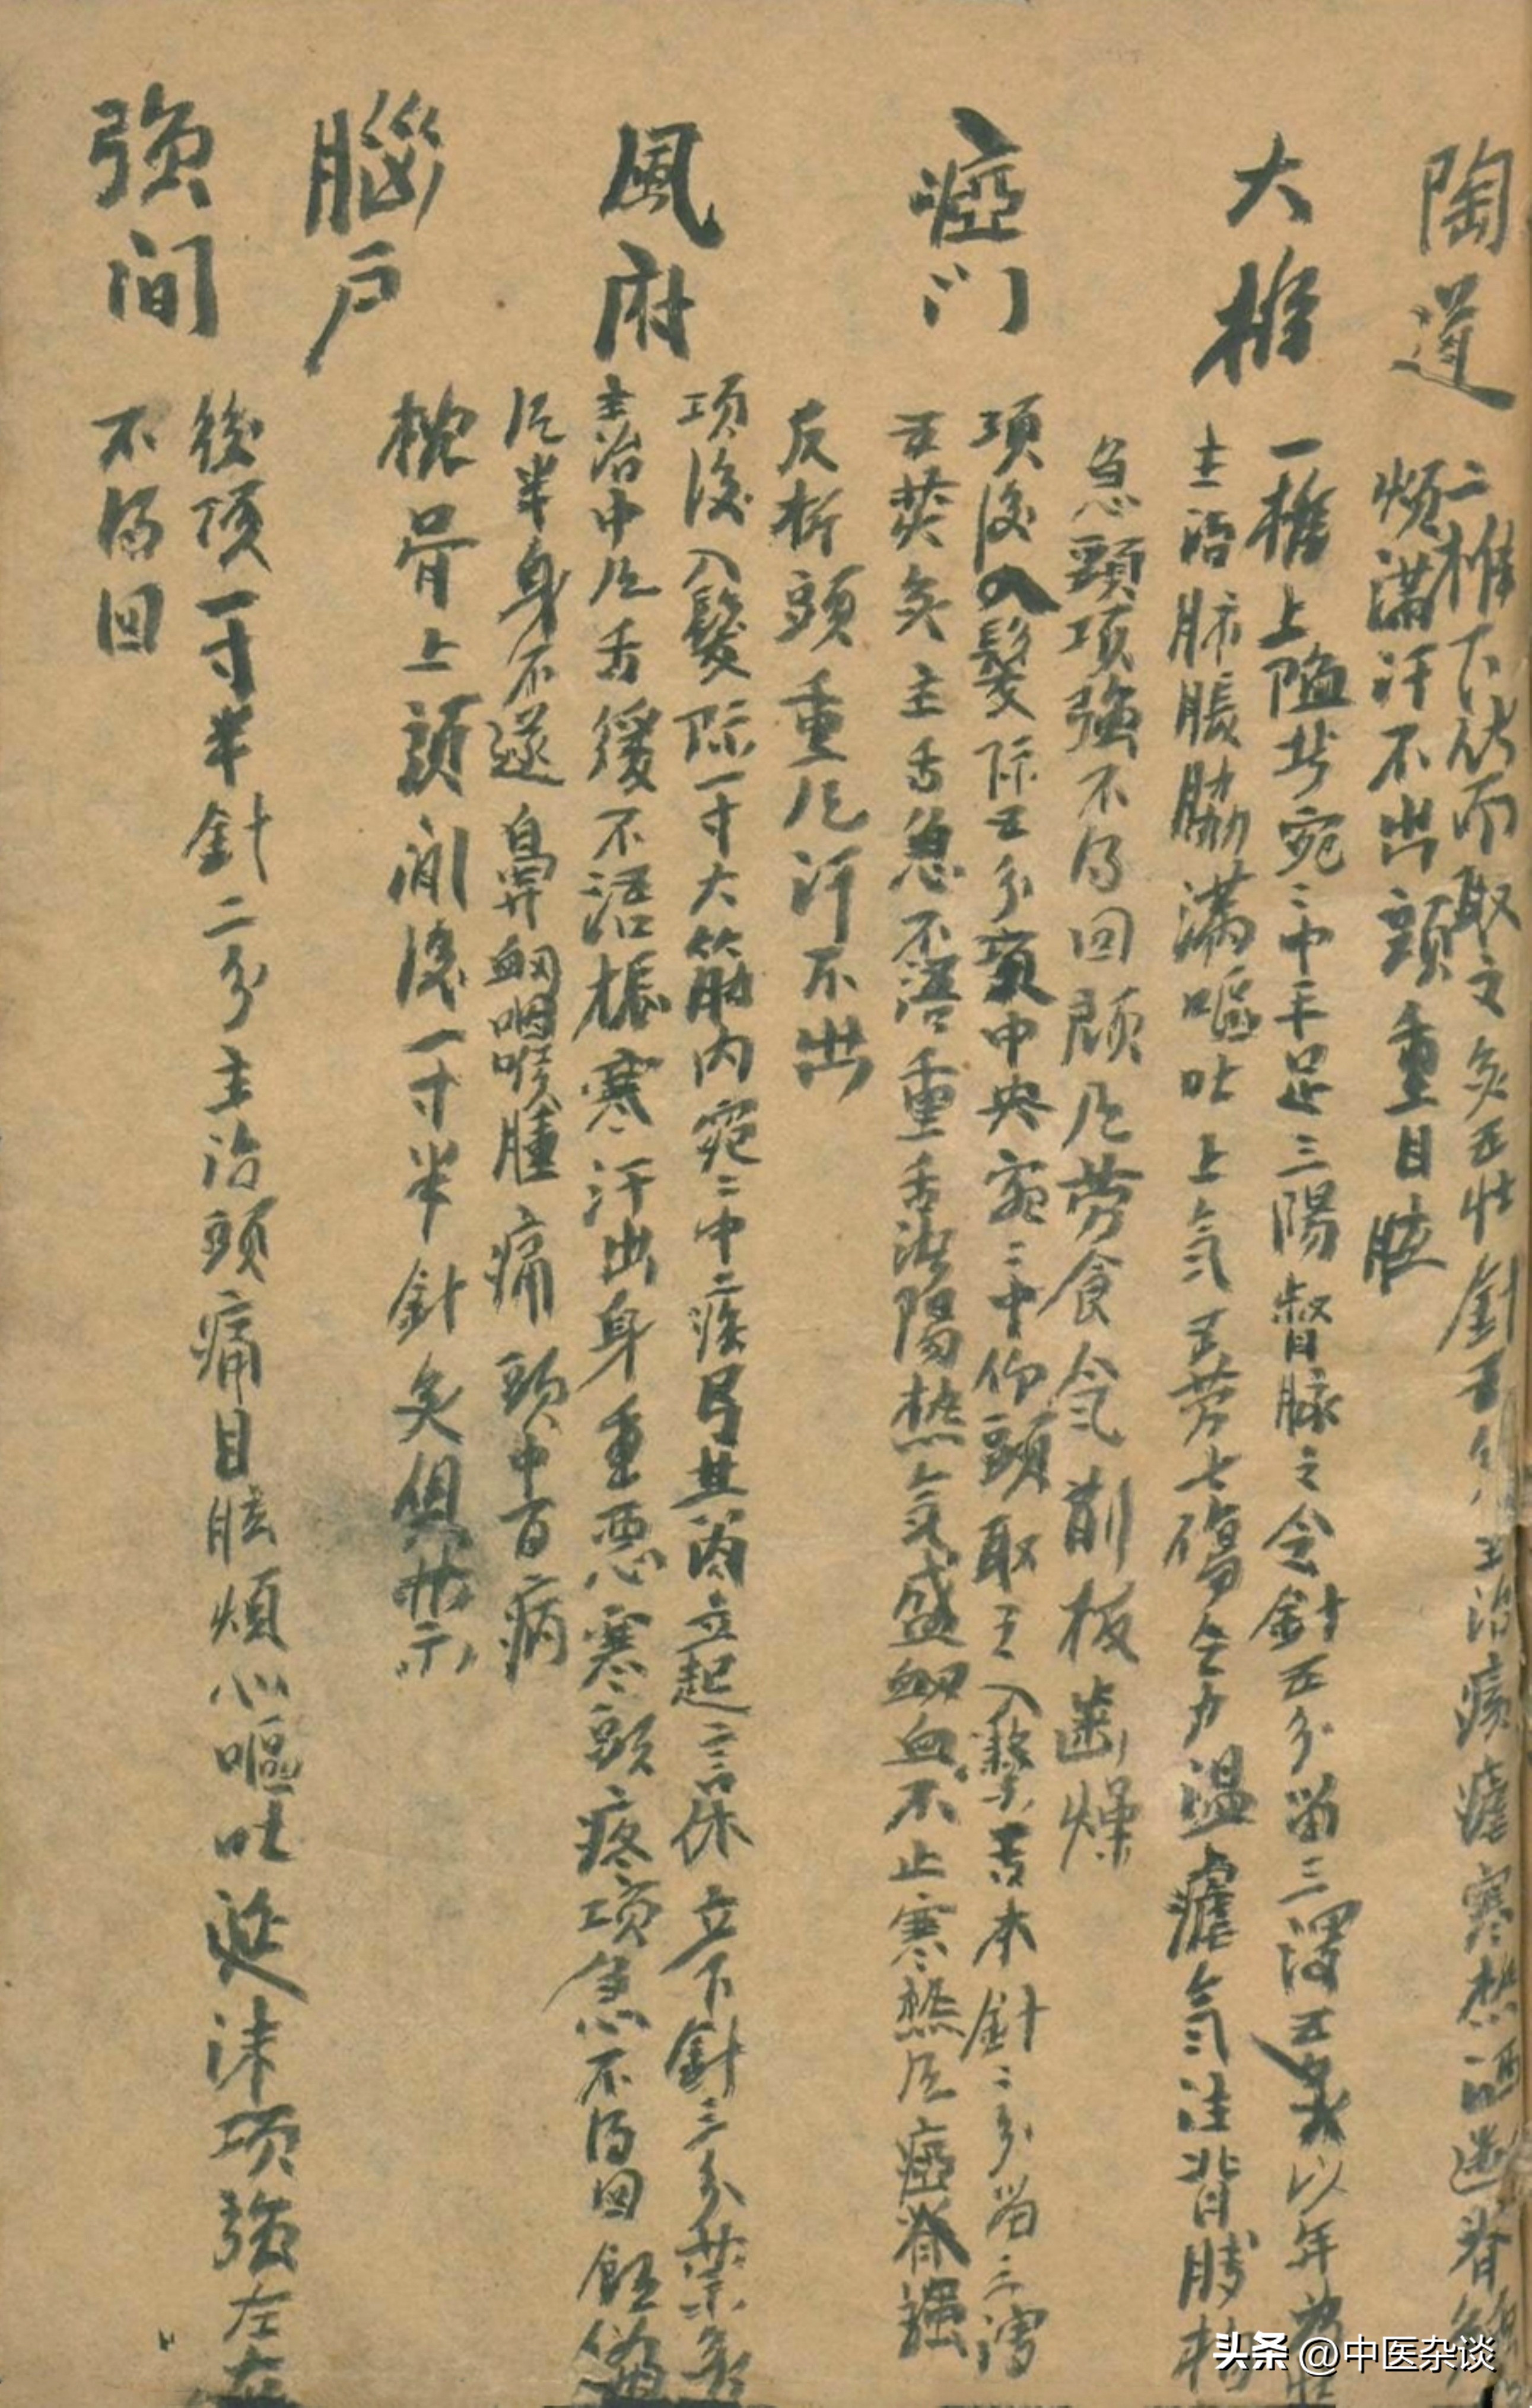 陶道
二椎下伏而取之灸五壮針五分主治痎瘧寒热洒淅脊
煩滿汗不出頭重目眩
大椎
一椎上陷者宛二中手足三陽督脉之会針五分留三呼泻五吸灸以年為壮
主治肺脹脇滿嘔吐上气五劳七傷乏力温瘧气注背膊拘
急頸項強不得回顾风劳食气削板齒燥
瘂门
項後入髮际五分項中央宛二中仰頭取之入繫舌本針二分留三呼
禁灸主舌急不语重舌诸陽热气盛衄血不止寒热风瘂脊强
反折頭重风汗不出
風府
项後入髮际一寸大筋内宛二中疾言其肉立起言休立下針三分禁灸
主治中风舌缓不语振寒汗出身重恶寒頭疼项急不得回
风半身不遂鼻衄咽喉腫痛頭中百病
腦户
枕骨上强间後一寸半針灸俱禁
強间
後顶一寸半針二分主治頭痛目眩煩心嘔吐涎沫项強左右
不得回
头条 @中医杂谈